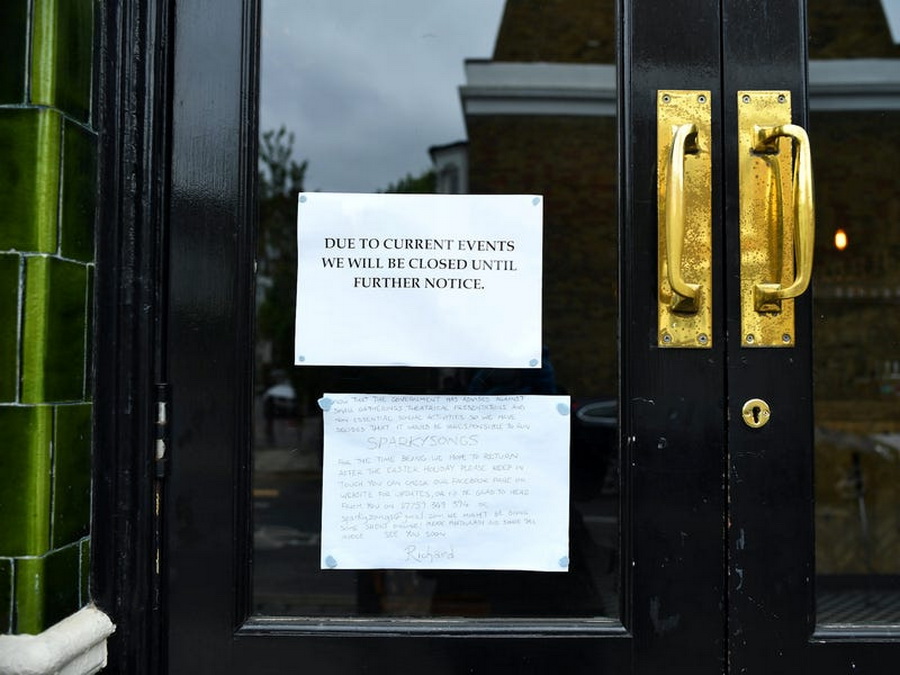 DUE TO CURRENT EVENTS
WE WILL BE CLOSED UNTIL
FURTHER NOTICE.
NOW THAT THE GOVERNMENT HAS ADVISED AGAINST
GATHERINGS THEATRICAL PRESENTATIONS AND
NON ESSENTIAL SOCIAL ACTIVITIES SO WE HAVE
DECIDED THAT IT WOULD BE IRRESPONSIBLE TO RUN
SPARKYSONGS
FOR THE TIME BEING. WE HOPE TO RETURN
AFTER THE EASTER HOLIDAY PLEASE KEEP IN
TOUCH YOU CAN CHECK OUR FACEBOOK PAGE OR
WEBSITE FOR UPDATES, OR I'D BE GLAD TO HEAR
FROM YOU ON
WE MIGHT BE DOING
SOME
SEE YOU SOON
Richard